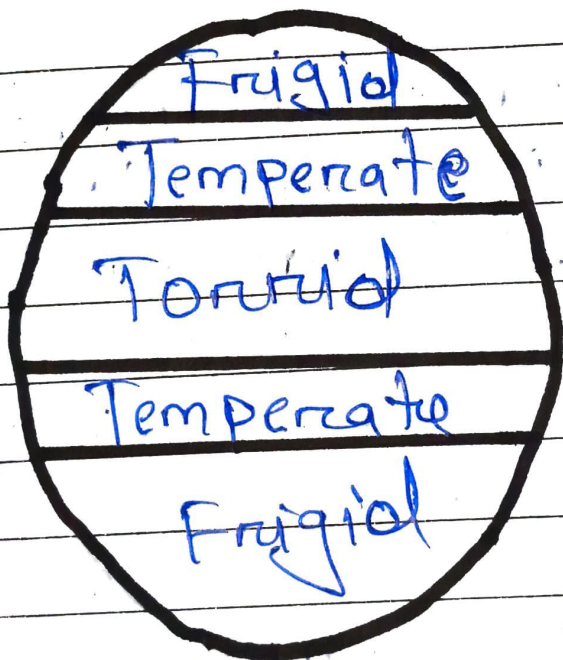 Frigid
Temperate
Torrid
Temperate
Frigid